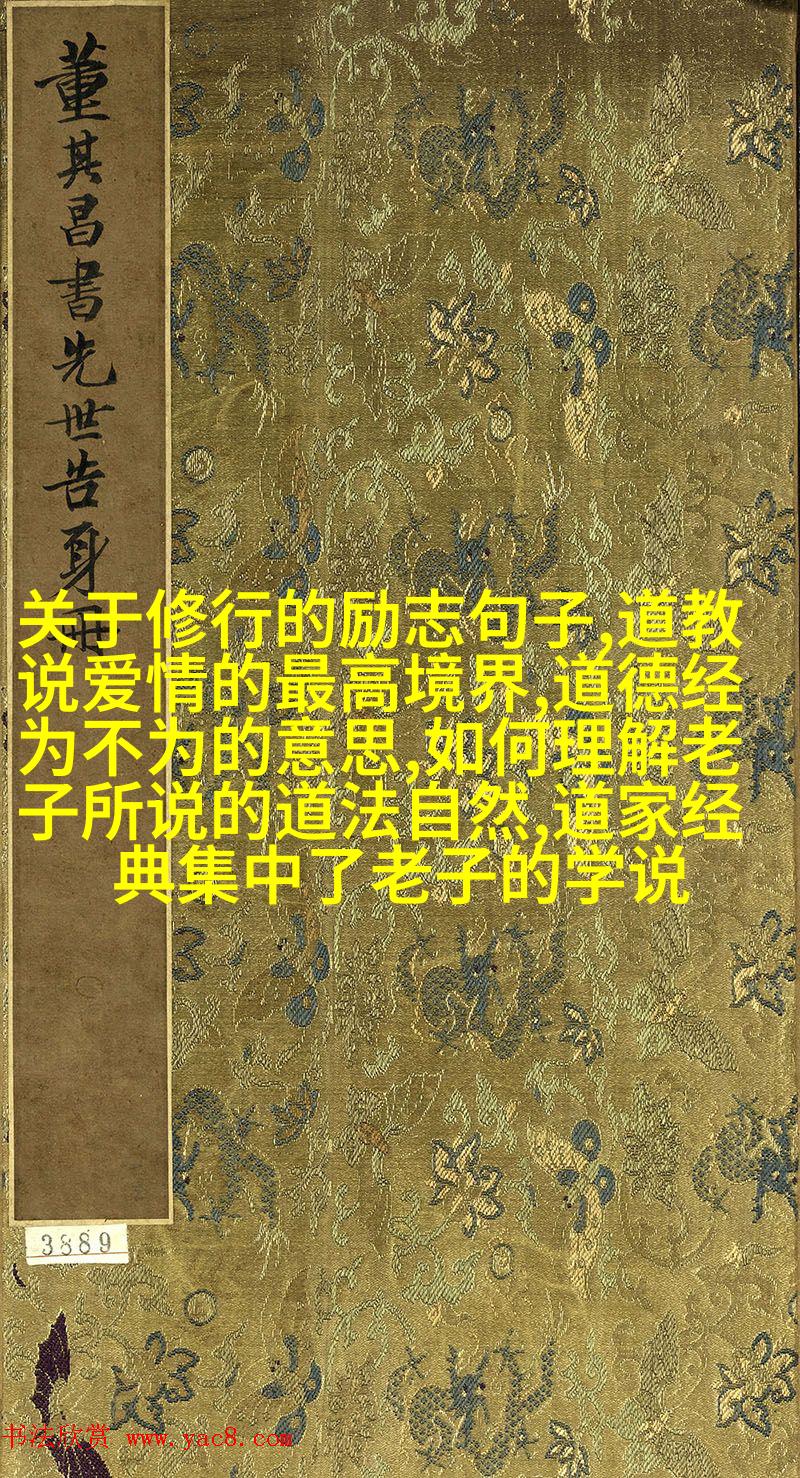 董其昌書先世告身冊
关于修行的励志句子,道教
说爱情的最高境界,道德经
为不为的意思,如何理解老
子所说的道法自然,道家经
典集中了老子的学说
3889
书法欣赏 www.yac8.com